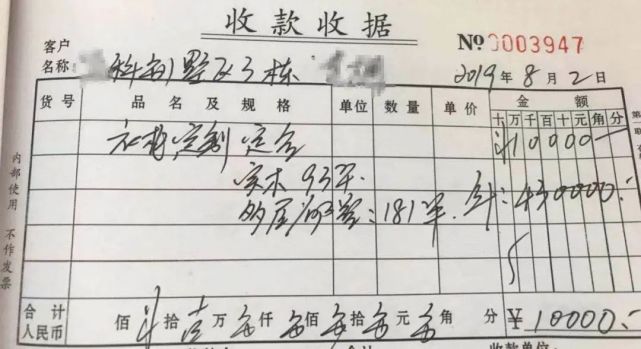 收款收据
客户
名称 别墅区3栋
№ 0003947
2019年8月2日
货号 品名及规格 单位 数量 单价 金额
十万千百十元角分
定制定金 10000
实木 93平
多层 : 181平. 计:430000.
内部使用 不作发票
合计
人民币 佰 拾壹万零仟零佰零拾零元零角 分 ¥10000.
收款单位: